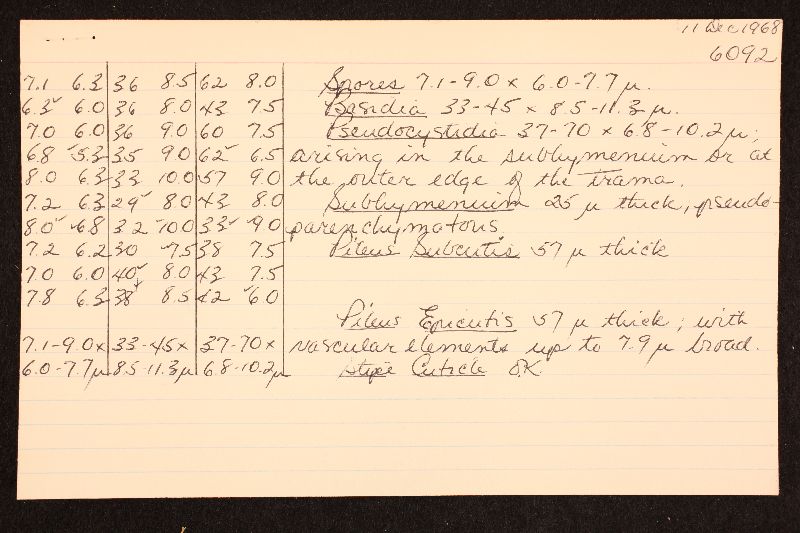 11 Dec 1968
6092
7.1 6.3 36 8.5 62 8.0 Spores 7.1-9.0 x 6.0-7.7 µ.
6.3 6.0 36 8.0 43 7.5 Basidia 33-45 x 8.5-11.3 µ.
7.0 6.0 36 9.0 60 7.5 Pseudocystidia 37-70 x 6.8-10.2 µ;
6.8 5.3 35 9.0 62 6.5 arising in the subhymenium or at
8.0 6.3 33 10.0 57 9.0 the outer edge of the trama.
7.2 6.3 29 8.0 43 8.0 Subhymenium 25 µ thick, pseudo-
8.0 6.8 32 10.0 33 9.0 parenchymatous
7.2 6.2 30 7.5 38 7.5 Pileus Subcutis 57 µ thick
7.0 6.0 40 8.0 43 7.5
7.8 6.3 38 8.5 42 6.0
Pileus Epicutis 57 µ thick; with
7.1-9.0 x 33-45 x 37-70 x vascular elements up to 7.9 µ broad.
6.0-7.7 µ 8.5-11.3 µ 6.8-10.2 µ Stipe Cuticle OK